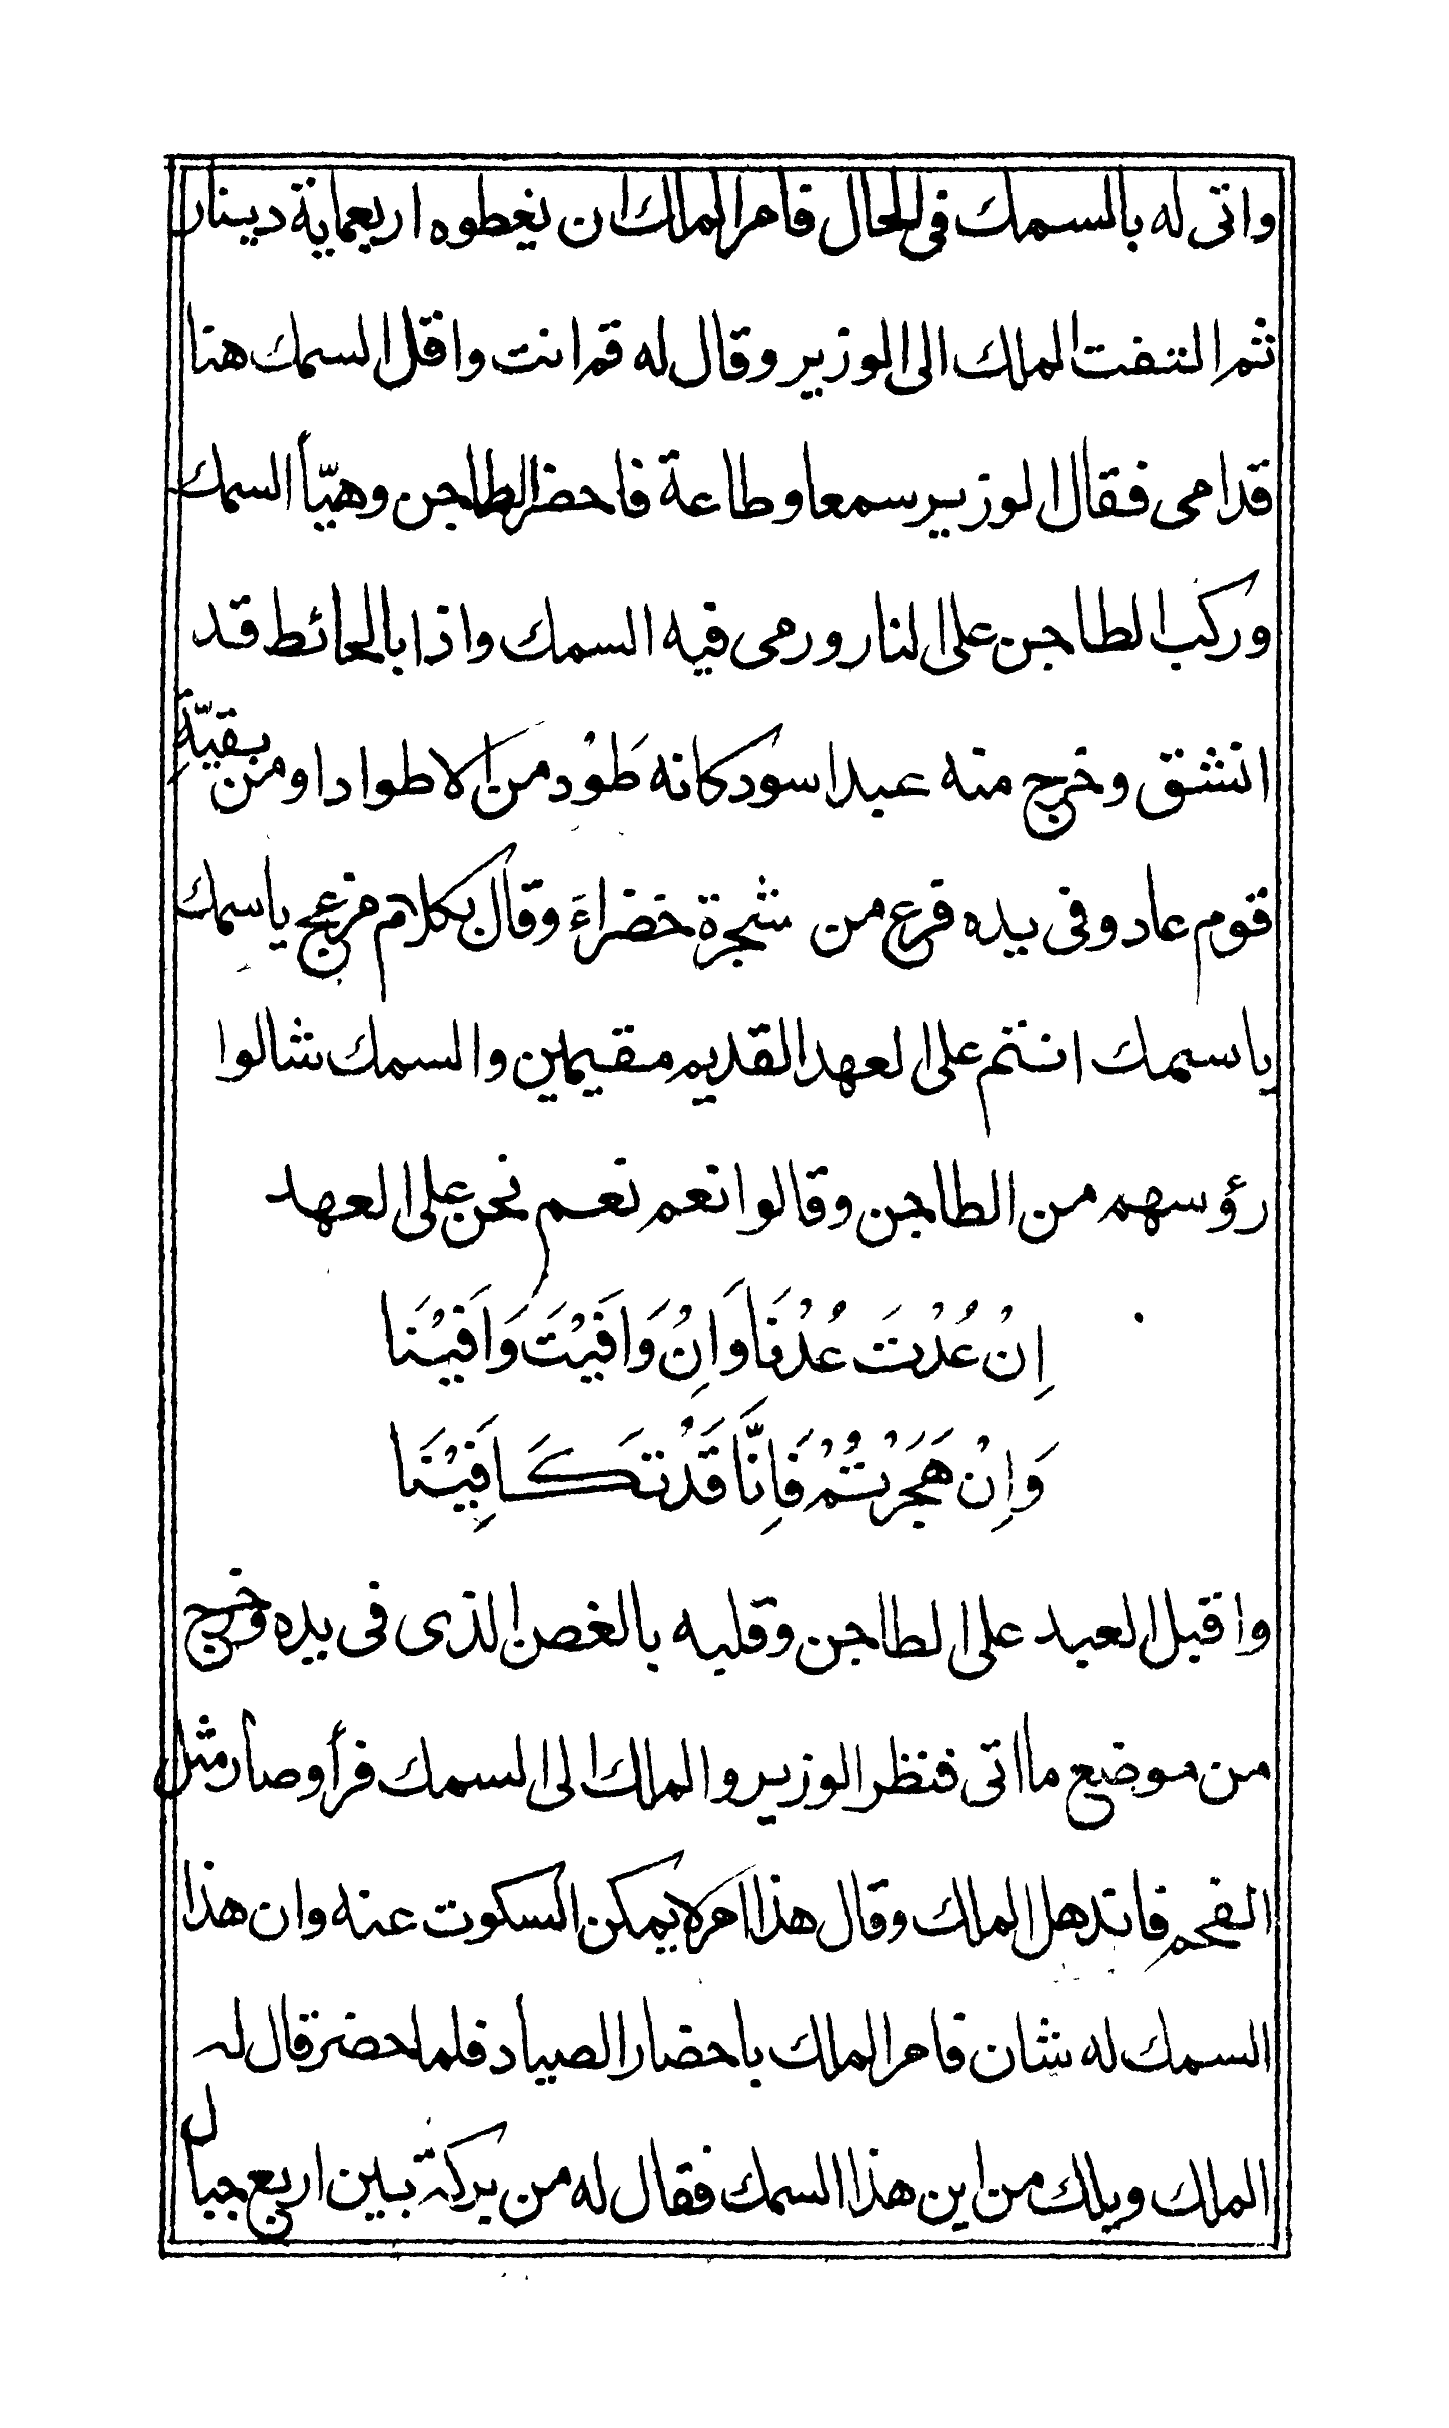 واتى له بالسمك فى الحال فامر الملك ان يعطوه اربعماية دينار
ثم التفت الملك الى الوزير وقال له قم انت واقل السمك هنا
قدامى فقال الوزير سمعا وطاعة فاحضر الطاجن وهيّأ السمك
وركب الطاجن على النار ورمى فيه السمك واذا بالحائط قد
انشق وخرج منه عبد اسود كانه طَوْد من الاطواد او من بقيّةِ
قوم عاد وفى يده فرع من شجرة خضراءَ وقال بكلام مزعج ياسمك
ياسمك انتم على العهد القديم مقيمين والسمك شالوا
رؤسهم من الطاجن وقالوا نعم نعم نحن على العهد
اِنْ عُدْتَ عُدْنَا وَاِنْ وَافَيْتَ وَافَيْنَا
وَاِنْ هَجَرْتُمْ فَاِنَّا قَدْ تَكَافَيْنَا
واقبل العبد على الطاجن وقلبه بالغصن الذى فى يده وخرج
من موضع ما اتى فنظر الوزير والملك الى السمك فرأوه صار مثل
الفحم فاندهل الملك وقال هذا امر لا يمكن السكوت عنه وان هذا
السمك له شان فامر الملك باحضار الصياد فلما حضر قال له
الملك ويلك من اين هذا السمك فقال له من بركة بين اربع جبال